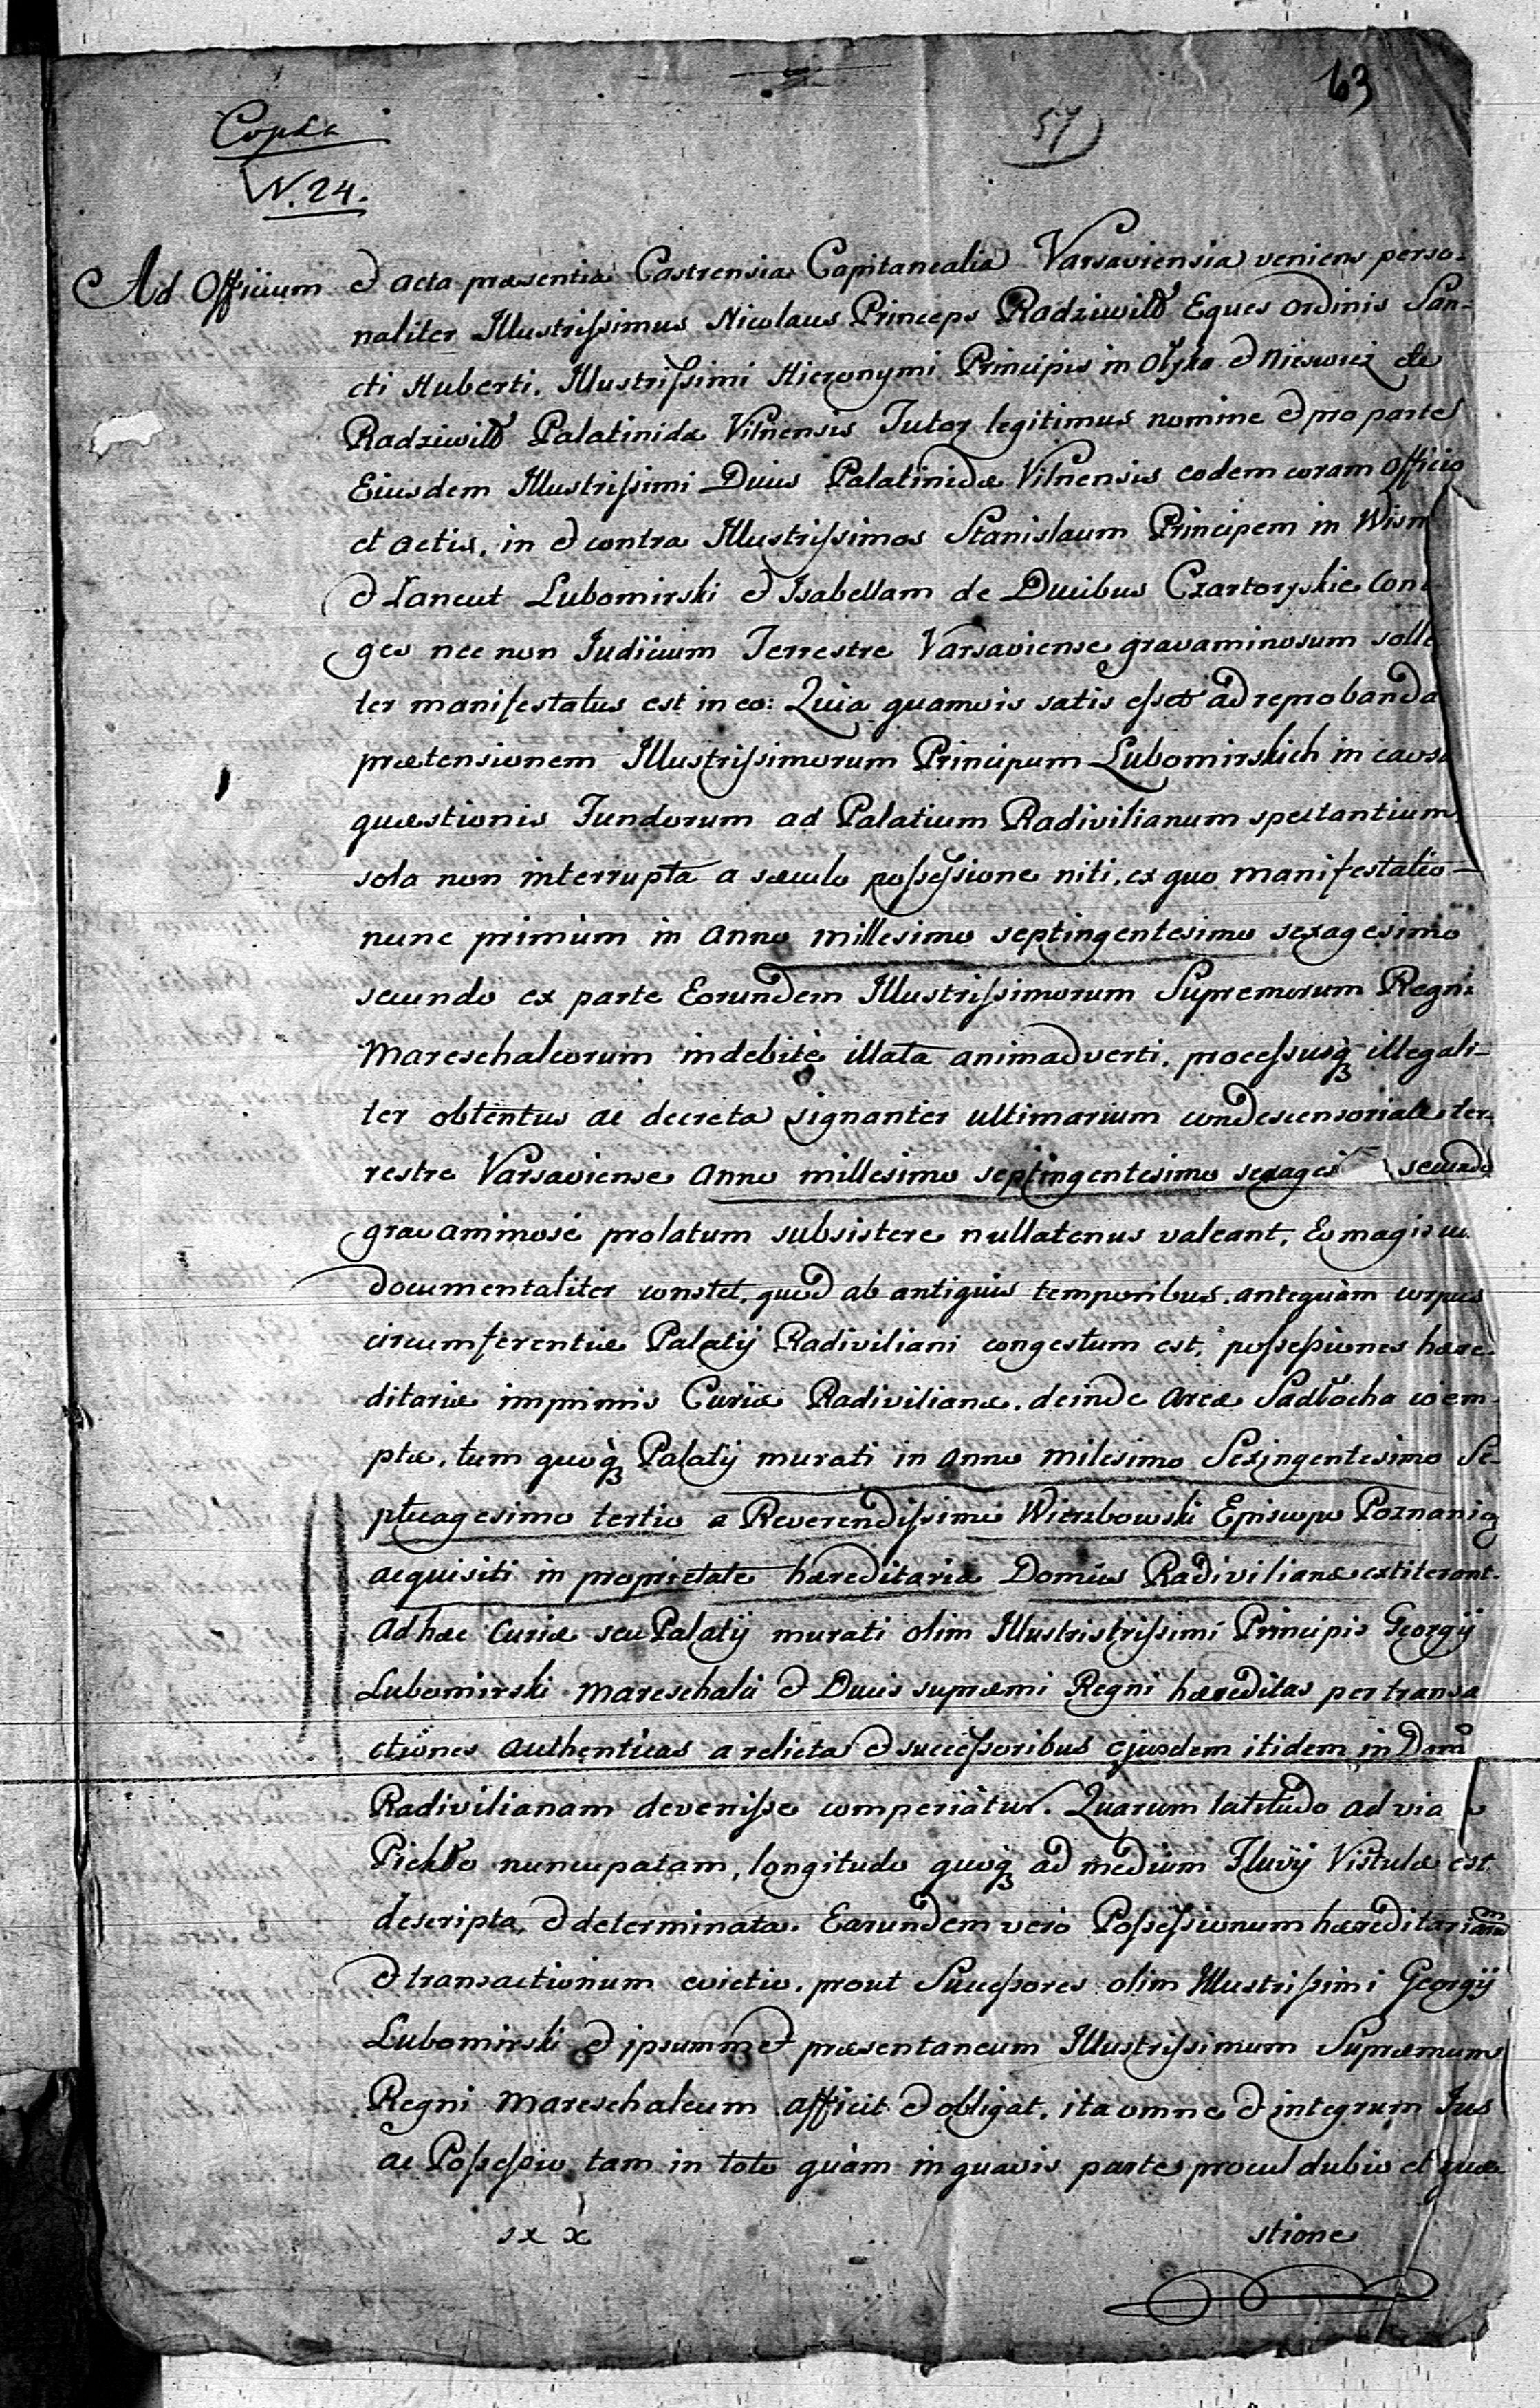 63
57
Copia
N. 24.
Ad Officium et acta præsentia Castrensia Capitanealia Varsaviensia veniens perso-
naliter Illustrissimus Nicolaus Princeps Radziwiłł Eques ordinis San-
cti Huberti, Illustrissimi Hieronymi Principis in Ołyka et Nieswiez de
Radziwiłł Palatinidæ Vilnensis Tutor legitimus nomine et pro parte
Eiusdem Illustrissimi Ducis Palatinidæ Vilnensis eodem coram Officio
et actis, in et contra Illustrissimos Stanislaum Principem in Wisn
et Łancut Lubomirski et Isabellam de Ducibus Czartoryskie Con
ges nec non Iudicium Terrestre Varsaviense gravaminosum solle
ter manifestatus est in eo: Quia quamvis satis esset ad reprobanda
prætensionem Illustrissimorum Principum Lubomirskich in caus
quæstionis Fundorum ad Palatium Radivilianum spectantium,
sola non interrupta a sæculo possessione niti, ex quo manifestatio
nunc primùm in anno millesimo septingentesimo sexagesimo
secundo ex parte Eorundem Illustrissimorum Supremorum Regni
Mareschalcorum indebitè illata animadverti, processusq̃ illegali-
ter obtentus ac decreta signanter ultimarium condescensoriale ter-
restre Varsaviense anno millesimo septingentesimo sexagesi secundo
gravaminosè prolatum subsistere nullatenus valeant, Eo magis
documentaliter constet, quod ab antiquis temporibus, antequàm corpus
circumferentiæ Palatij Radiviliani congestum est, possessiones hære-
ditariæ imprimis Curiæ Radivilianæ, deinde areæ Sadłocha coem-
ptæ, tum quoq̃ Palatij murati in anno milesimo Sexingentesimo Se-
ptuagesimo tertio a Reverendissimo Wierzbowski Episcopo Poznanię
acquisiti in proprietate hæreditaria Domûs Radivilianæ extiterant.
Ad hæc Curiæ seu Palatij murati olim Illustristrissimi Principis Georgij
Lubomirski Mareschalci et Ducis supræmi Regni hæreditas per transa
ctiones authenticas a relicta et successoribus ejusdem itidem in Dom̃
Radivilianam devenisse comperiatur. Quarum latitudo ad via
Piekło nuncupatam, longitudo quoq̃ ad medium Fluvij Vistulæ est
descripta et determinata. Earundem vero Possessionum hæreditariarum
et transactionum evictio, prout Successores olim Illustrissimi Georgij
Lubomirski et ipsummet præsentaneum Illustrissimum Supræmum
Regni Mareschalcum afficit et obligat, ita omne et integrum Jus
ac Possessio tam in toto quàm in quavis parte procul dubio et quæ-
stione